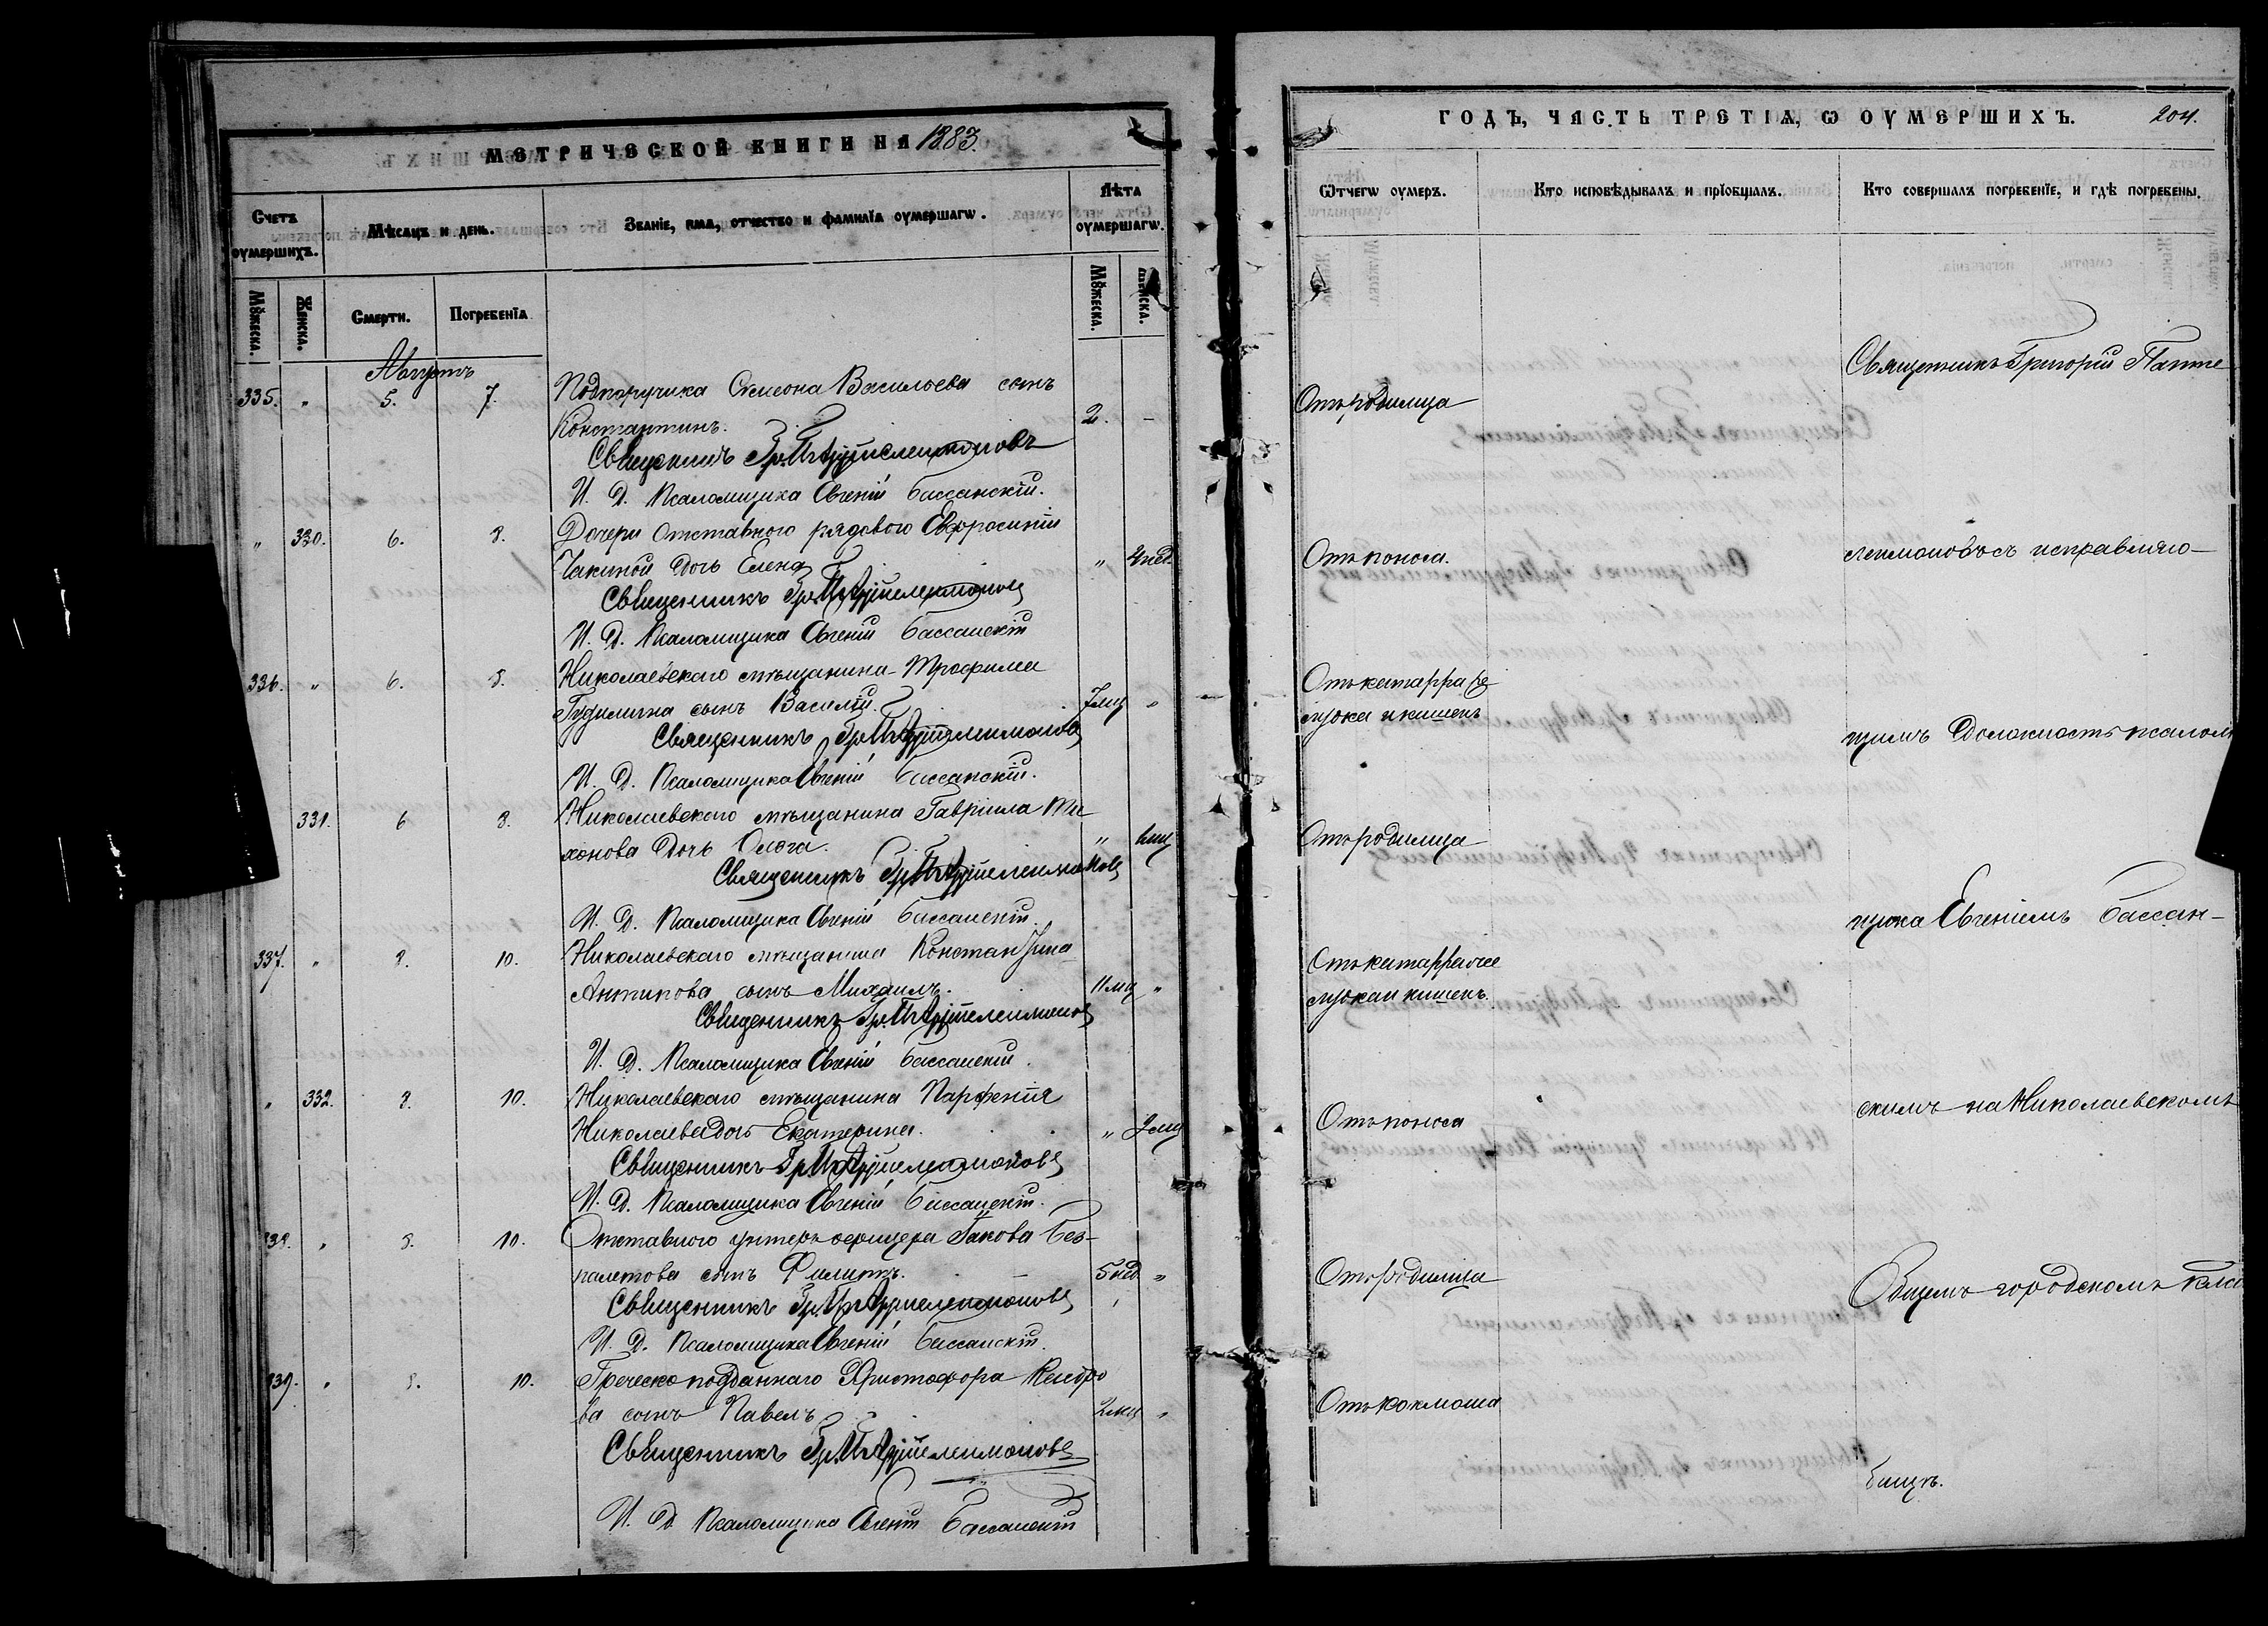 МЕТРИЧЕСКОЙ КНИГИ НА 1883.
Счетъ оумершихъ.
Мѣсяцъ и день.
Званіе, имя, отчество и фамилїа оумершагѡ.
Лѣта оумершагѡ.
Мꙋжеска.
Женска.
Смерти.
Погребенїа
Мꙋжеска.
Женска.
Августъ
335. " 5. 7. Подпоручика Симеона Васильева сынъ
Константинъ. 2. -
Священникъ Гр. Пантелеимоновъ
И. Д. Псаломщика Евгеній Бассанскій.
" 330. 6. 8. Дочери отставного рядового Евфросиніи
Чакиной дочь Елена " 4 нед.
Священникъ Гр. Пантелеимоновъ
И. Д. Псаломщика Евгеній Бассанскій
336. " 6. 8. Николаевскаго мѣщанина Трофима
сынъ Василій. 7 мц "
Священникъ Гр. Пантелеимоновъ
И. Д. Псаломщика Евгеній Бассанскій.
331. 6 8. Николаевскаго мѣщанина Гавріила Ти-
хонова дочь Ольга. " мц
Священникъ Гр. Пантелеимоновъ
И. Д. Псаломщика Евгеній Бассанскій.
337. " 8. 10. Николаевскаго мѣщанина Константина
Антипова сынъ Михаилъ. 11 мц "
Священникъ Гр. Пантелеимоновъ
И. Д. Псаломщика Евгеній Бассанскій.
" 332. 8. 10. Николаевскаго мѣщанина Парфенія
Николаева дочь Екатерина. " мц
Священникъ Гр. Пантелеимоновъ
И. Д. Псаломщика Евгеній Бассанскій.
338. " 8. 10. Отставного унтеръ офицера Іакова Без-
палетова сынъ Филиппъ. 5 нед. "
Священникъ Гр. Пантелеимоновъ
И. Д. Псаломщика Евгеній Бассанскій.
339. " 8. 10. Греческо подданнаго Христофора
ва сынъ Павелъ 2 мц "
Священникъ Гр. Пантелеимоновъ
И. Д. Псаломщика Евгеній Бассанскій
ГОДЪ, ЧАСТЬ ТРЕТІѦ, Ѡ ОУМЕРШИХЪ. 204.
Ѿчегѡ оумеръ.
Кто исповѣдывалъ и прїобщалъ.
Кто совершалъ погребенїе, и гдѣ погребены.
Священникъ Григорій Панте-
Отъ родимца
Отъ поноса.
леимоновъ съ исправляю-
Отъ катарра же-
лудка и кишекъ
щимъ должность псалом
Отъ родимца
щика Евгеніемъ Бассан-
Отъ катарра же
лудка и кишекъ.
скимъ на Николаевскомъ
Отъ поноса
Отъ родимца
Общемъ городскомъ клад
Отъ коклюша
бищѣ.